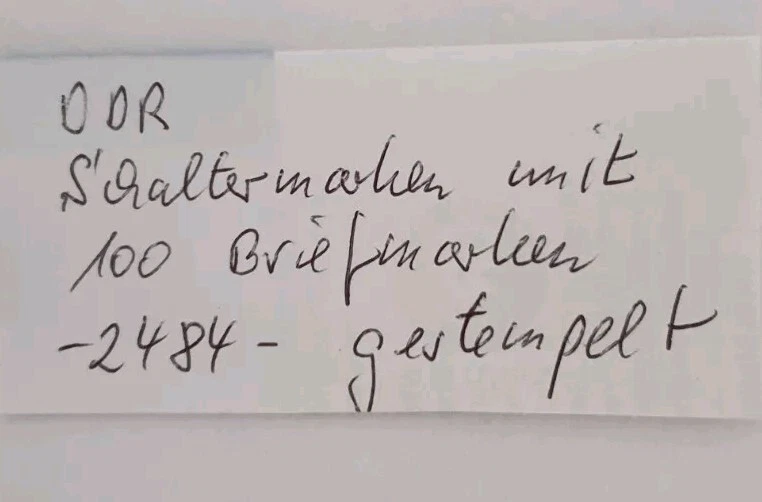 DDR
Schaltermarken mit
100 Briefmarken
-2484- gestempelt